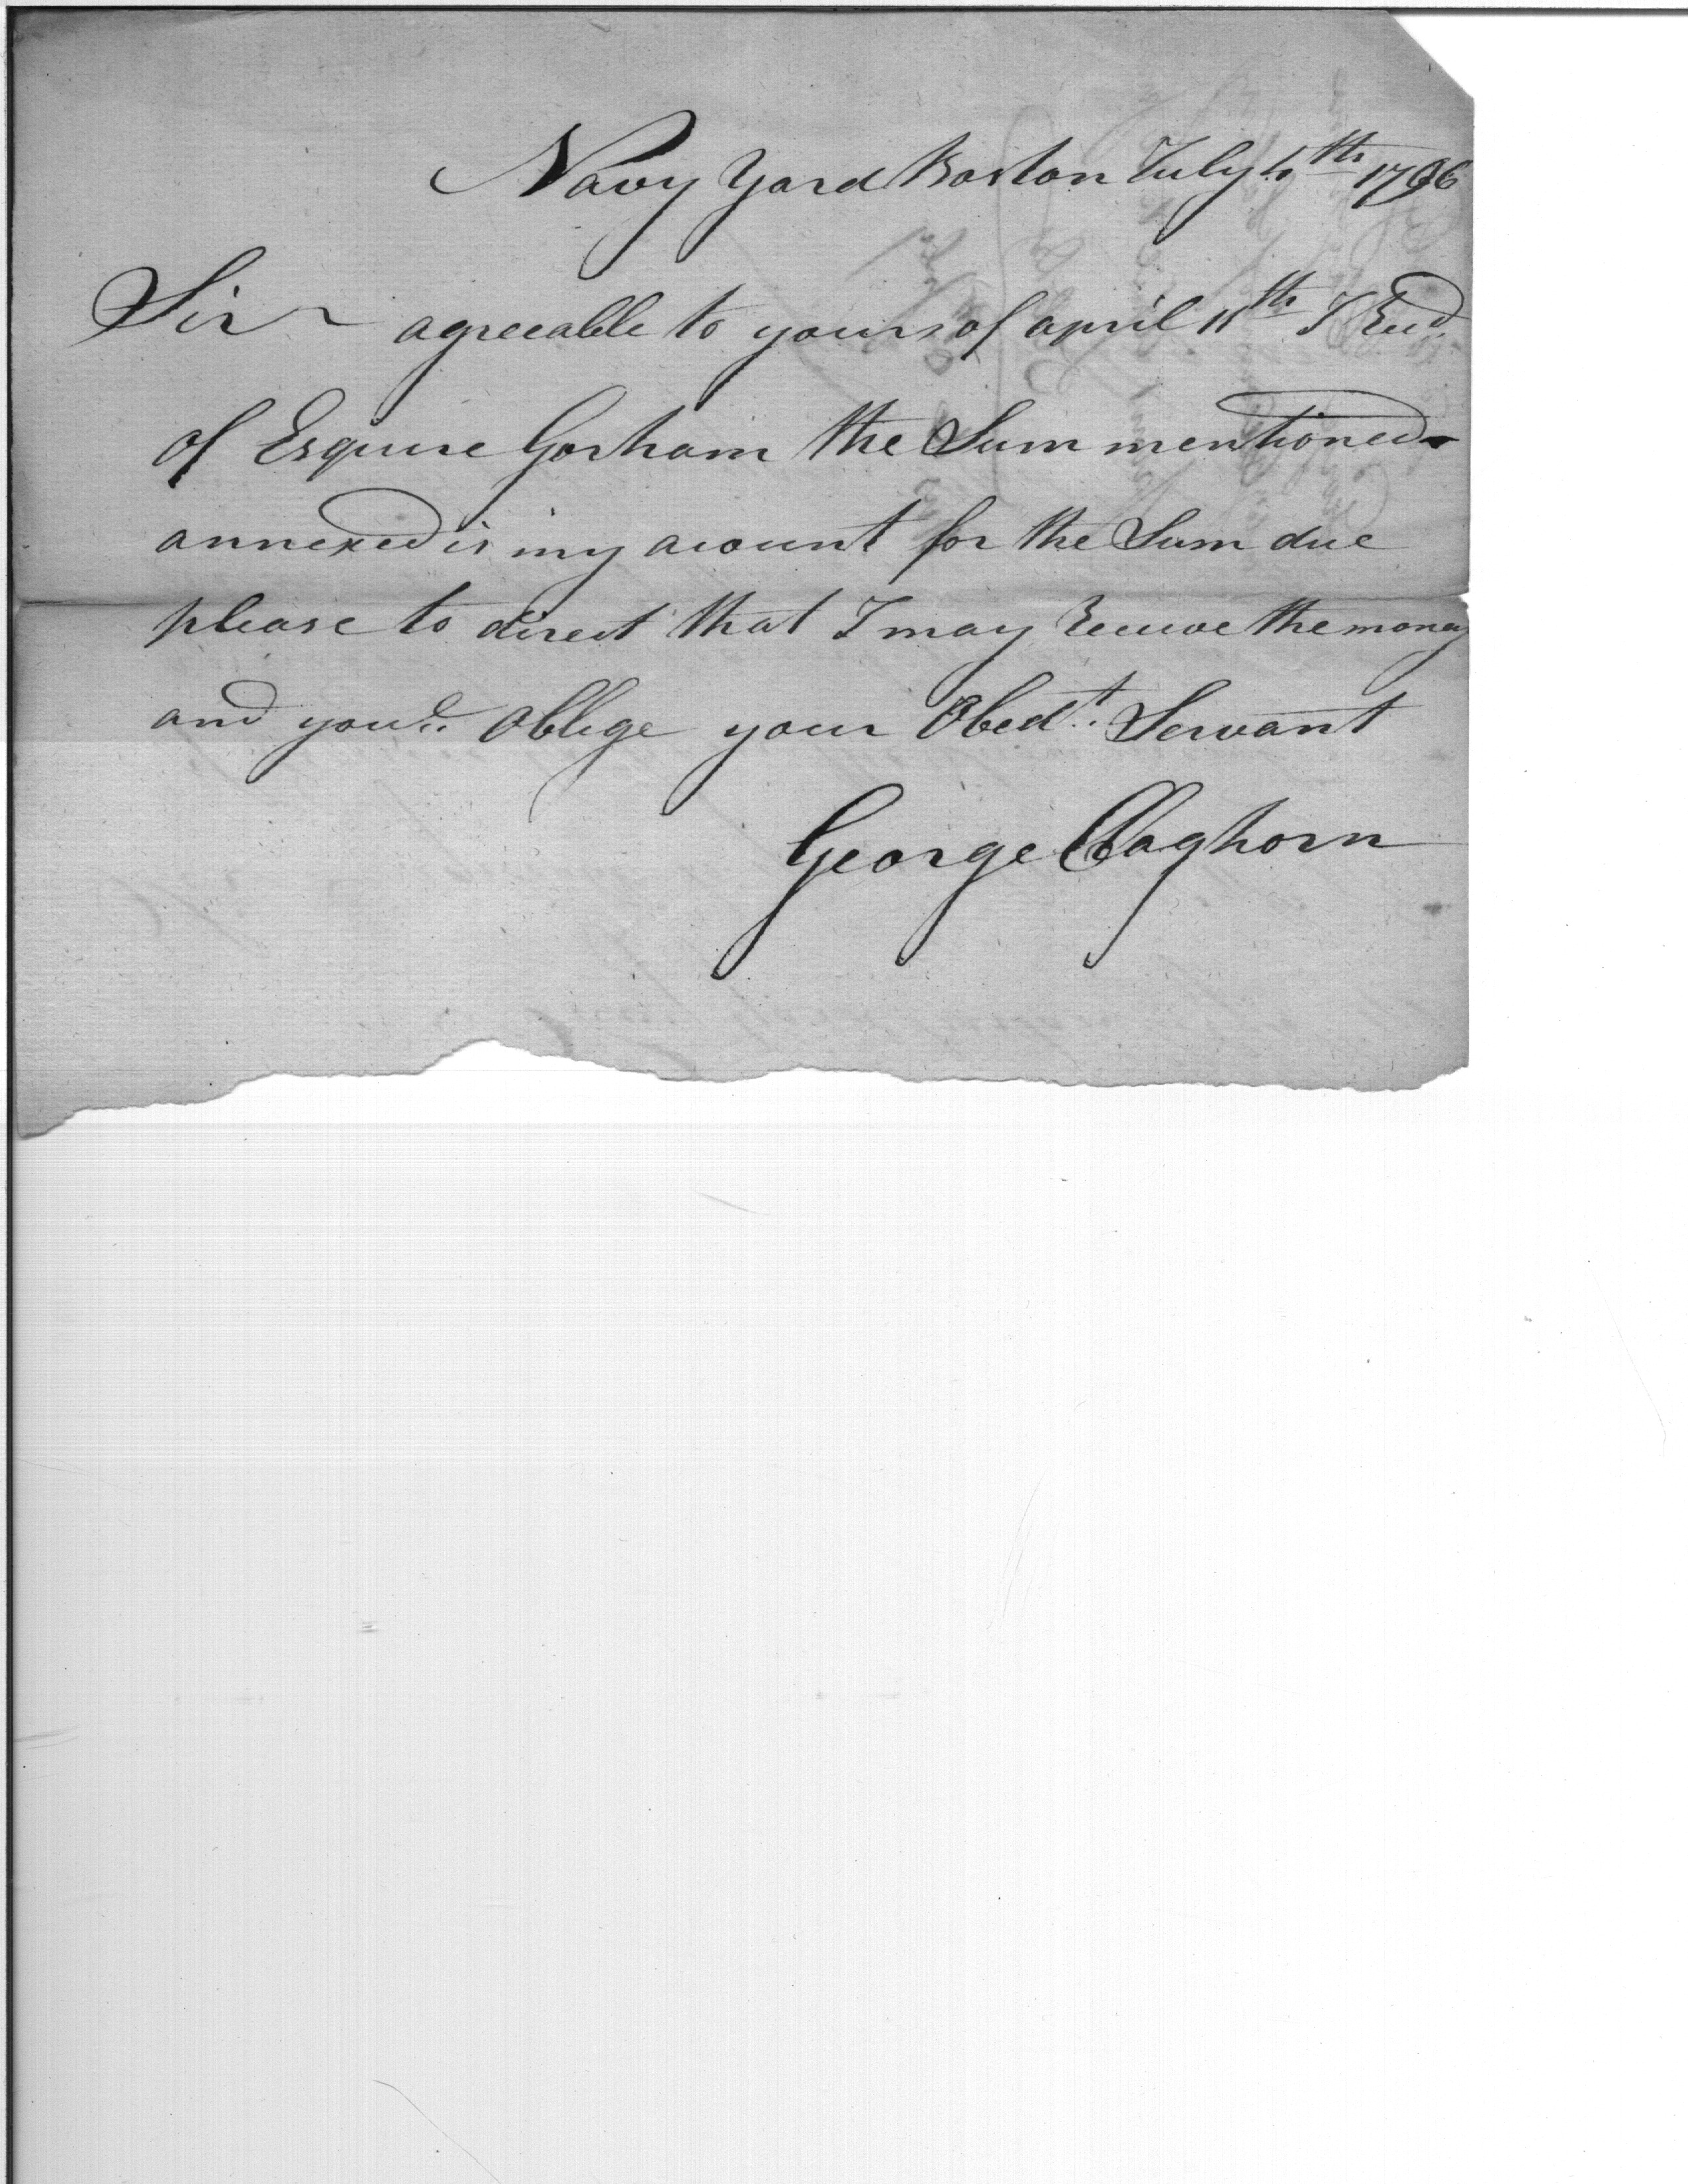 Navy Yard Boston July th 1796
Sir agreeable to yours of april 11th I Recd.
of Esquire Gorham the Sum mentioned
annexed is my acount for the Sum due
please to direct that I may Receive the money
and youl. Oblige your Obedt. Servant
George Claghorn